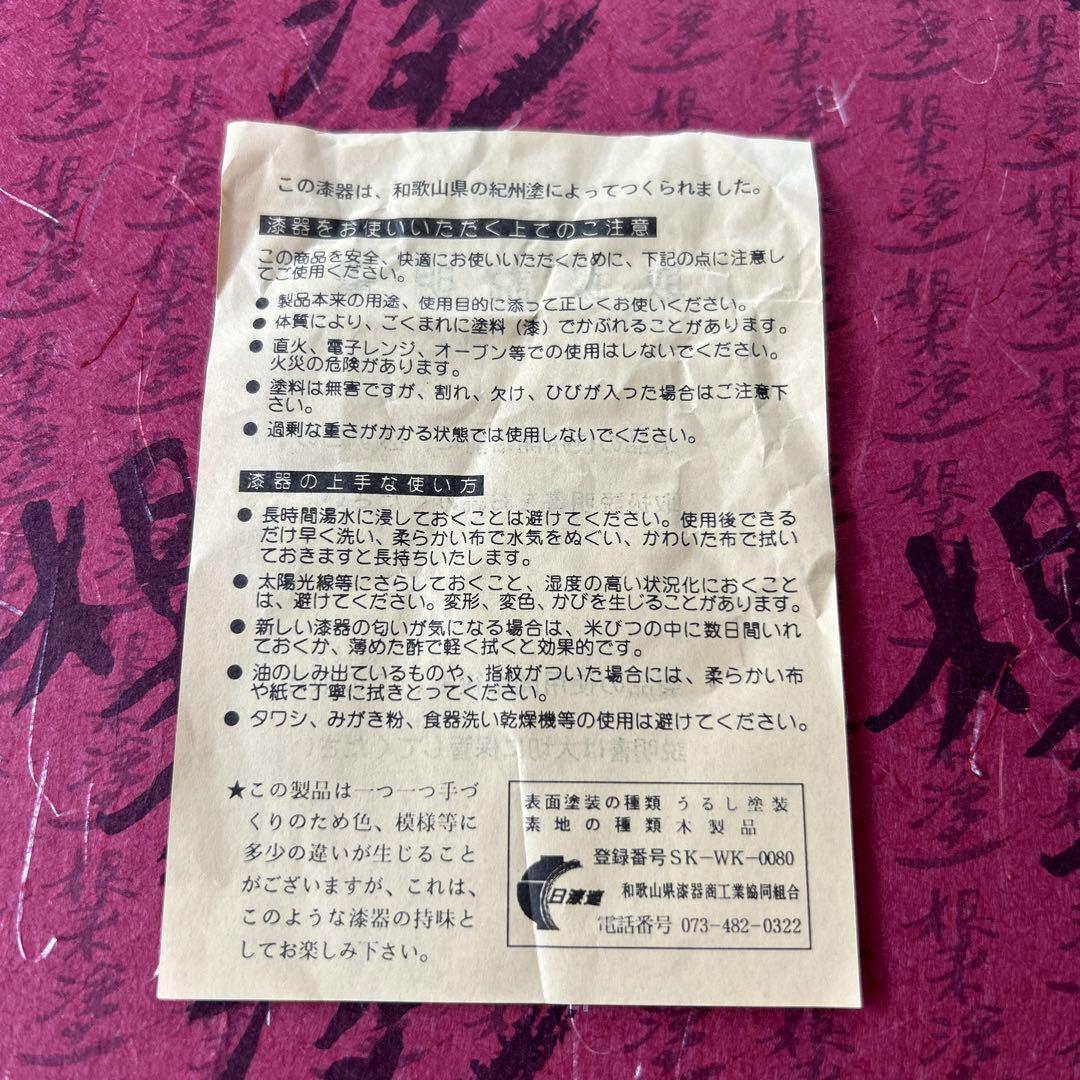 この漆器は、和歌山県の紀州塗によってつくられました。
漆器をお使いいただく上でのご注意
この商品を安全、快適にお使いいただくために、下記の点に注意し
てご使用ください。
● 製品本来の用途、使用目的に添って正しくお使いください。
● 体質により、ごくまれに塗料（漆）でかぶれることがあります。
● 直火、電子レンジ、オーブン等での使用はしないでください。
火災の危険があります。
● 塗料は無害ですが、割れ、欠け、ひびが入った場合はご注意下
さい。
● 過剰な重さがかかる状態では使用しないでください。
漆器の上手な使い方
● 長時間湯水に浸しておくことは避けてください。使用後できる
だけ早く洗い、柔らかい布で水気をぬぐい、かわいた布で拭い
ておきますと長持ちいたします。
● 太陽光線等にさらしておくこと、湿度の高い状況化におくこと
は、避けてください。変形、変色、かびを生じることがあります。
● 新しい漆器の匂いが気になる場合は、米びつの中に数日間いれ
ておくか、薄めた酢で軽く拭くと効果的です。
● 油のしみ出ているものや、指紋がついた場合には、柔らかい布
や紙で丁寧に拭きとってください。
● タワシ、みがき粉、食器洗い乾燥機等の使用は避けてください。
★この製品は一つ一つ手づ
くりのため色、模様等に
多少の違いが生じること
がございますが、これは、
このような漆器の持味と
してお楽しみ下さい。
表面塗装の種類 うるし塗装
素地の種類 木製品
登録番号SK-WK-0080
日漆連
和歌山県漆器商工業協同組合
電話番号 073-482-0322
根来塗